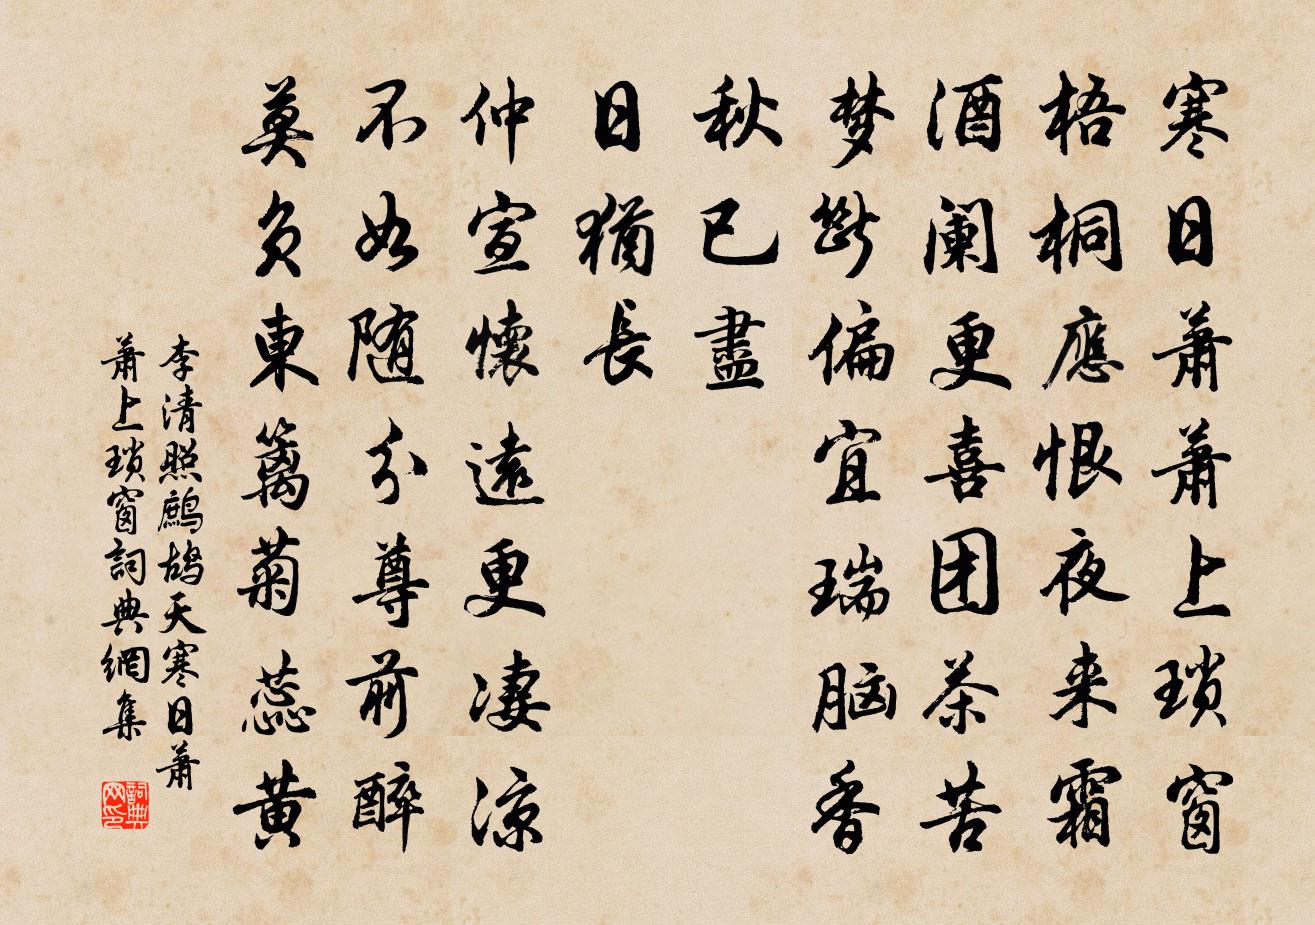 寒日萧萧上瑣窗
梧桐應恨夜来霜
酒阑更喜团茶苦
梦斷偏宜瑞脑香
秋已盡
日猶長
仲宣懷遠更凄涼
不如随分尊前醉
莫负東篱菊蕊黄
李清照鷓鸪天寒日萧
萧上瑣窗詞典網集
詞典
网印